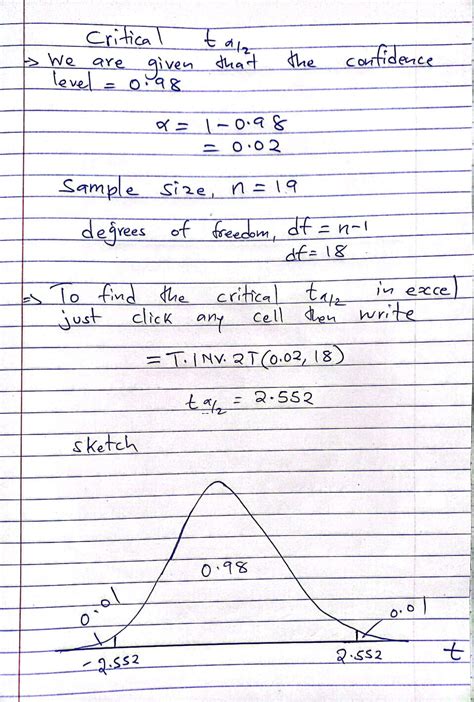 Critical t α/2
→ We are given that the confidence
level = 0.98
α = 1 - 0.98
= 0.02
Sample size, n = 19
degrees of freedom, df = n-1
df = 18
⇒ To find the critical t α/2 in excel
just click any cell then write
= T.INV.2T(0.02, 18)
t α/2 = 2.552
sketch
0.98
0.01
0.01
-2.552
2.552
t